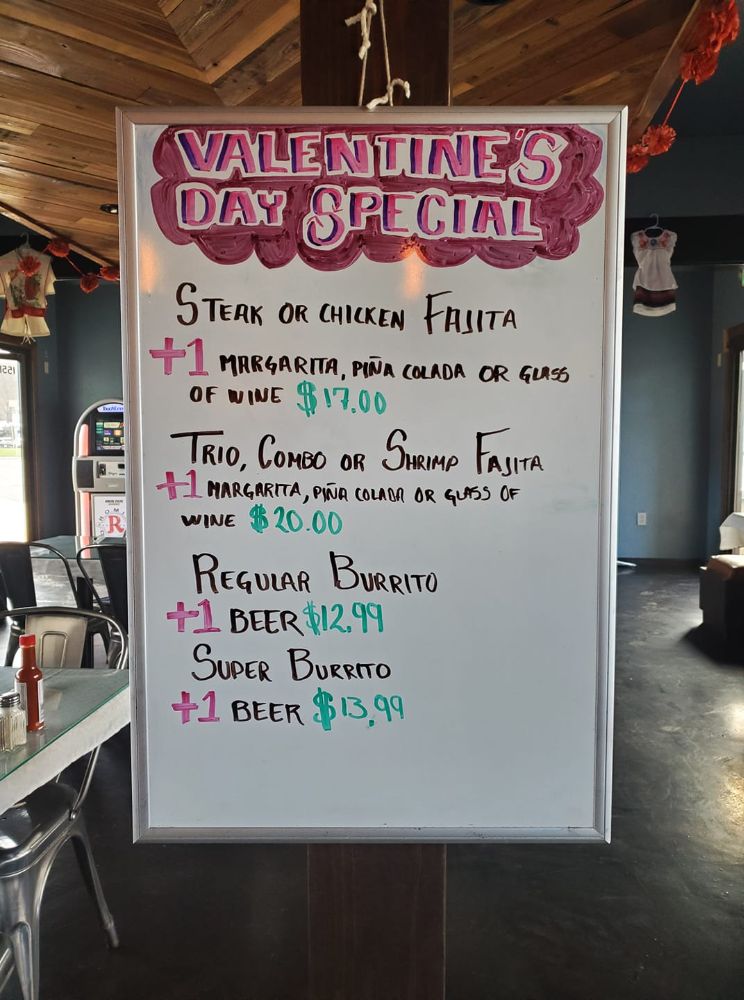 VALENTINE'S
DAY SPECIAL
STEAK OR CHICKEN FAJITA
+1 MARGARITA, PIÑA COLADA OR GLASS
OF WINE $17.00
TRIO, COMBO OR SHRIMP FAJITA
+1 MARGARITA, PIÑA COLADA OR GLASS OF
WINE $20.00
REGULAR BURRITO
+1 BEER $12.99
SUPER BURRITO
+1 BEER $13.99